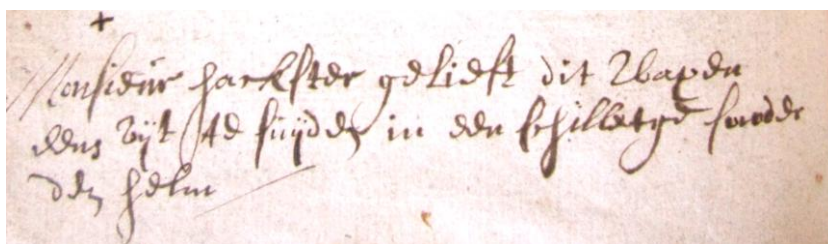 Monsieur hackster gelieft dit Wapen
eens uijt te snijden in een schilletge sonder
den helm